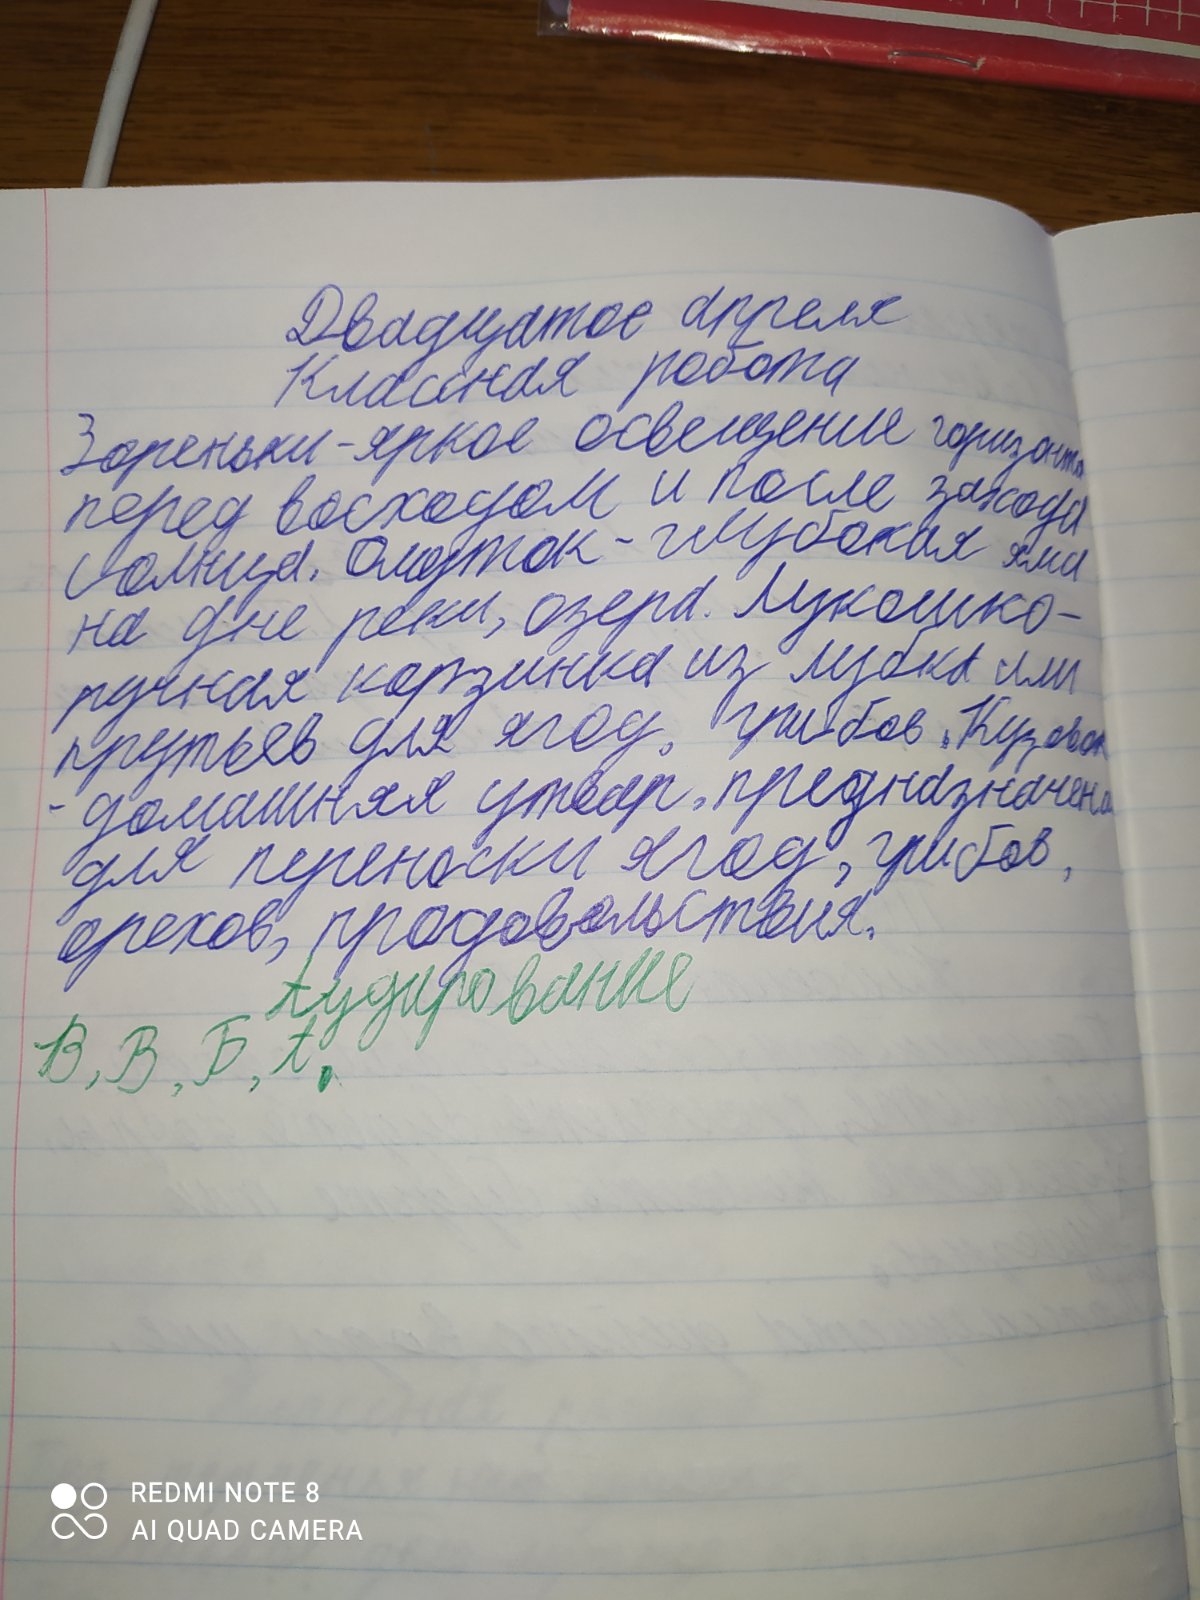 Двадцатое апреля
Классная работа
Зореньки-яркое освещение горизонта
перед восходом и после захода
солнца. Омуток-глубокая яма
на дне реки, озера. Лукошко-
ручная корзинка из лубка или
прутьев для ягод, грибов. Кузовок
-домашняя утварь, предназначена
для переноски ягод, грибов,
орехов, продовольствия.
Аудирование
В, В, Б, А.
REDMI NOTE 8
AI QUAD CAMERA